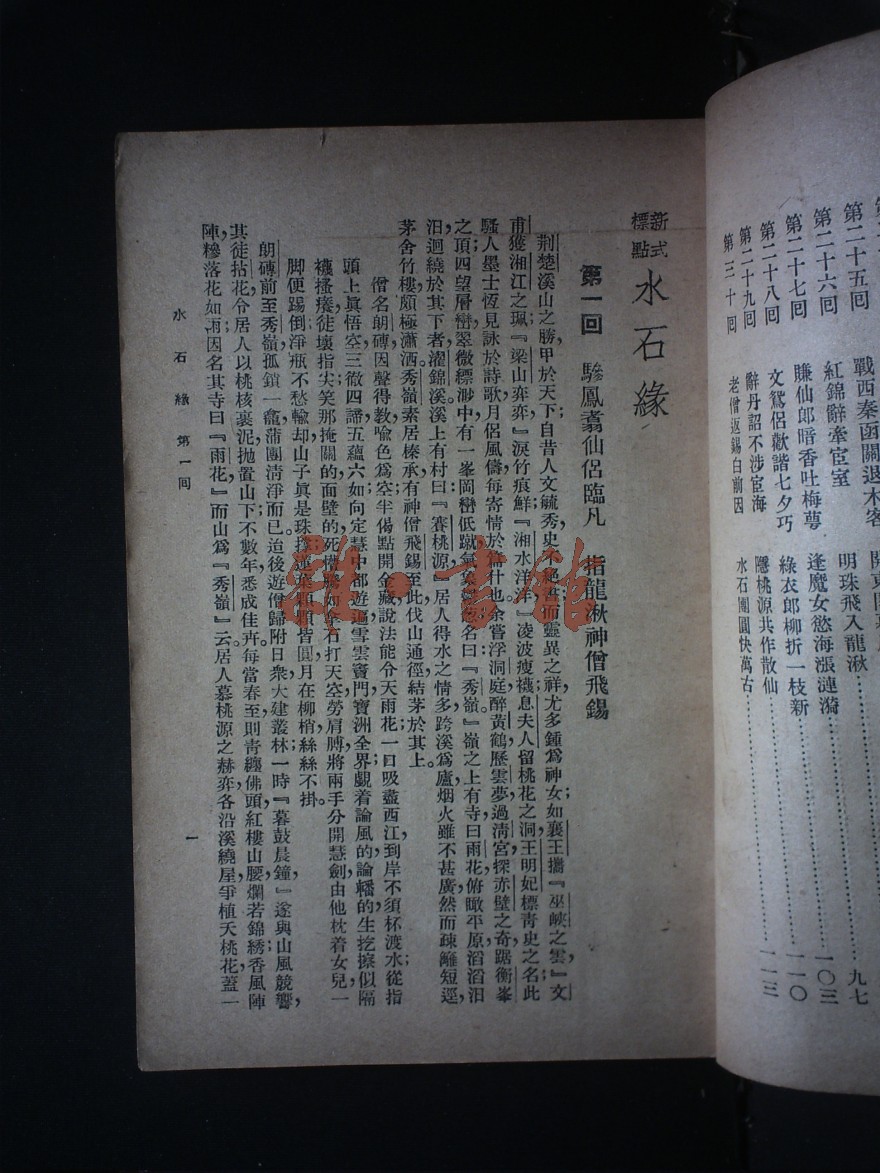 第二十五回 戰西秦函關退木客
第二十六回 紅錦辭牽宦室 明珠飛入龍湫…………九七
第二十七回 賺仙郎暗香吐梅萼 逢魔女慾海漲漣漪…………一〇三
第二十八回 文鴛侶歡諧七夕巧 綠衣郎柳折一枝新…………一一〇
第二十九回 辭丹詔不涉宦海 隱桃源共作散仙…………一一三
第三十回 老僧返錫白前因 水石團圓快萬古
新式標點 水石緣
第一回 驂鳳翥仙侶臨凡 指龍湫神僧飛錫
荆楚溪山之勝,甲於天下自昔人文毓秀史不絕書而靈異之祥尤多鍾爲神女如襄王攜『巫峽之雲』文
甫獲湘江之珮『梁山弈弈』淚竹痕鮮『湘水洋洋』凌波痩襪息夫人留桃花之洞王明妃標青史之名此
騷人墨士恆見詠於詩歌月侶風儔每寄情於篇什也余嘗浮洞庭醉黃鶴歷雲夢過清宮探赤壁之奇踞衡峯
之頂四望層巒翠微縹渺中有一峯岡巒低蹴氣 名曰『秀嶺』嶺之上有寺曰雨花俯瞰平原滔滔汨
汨迴繞於其下者濯錦溪溪上有村曰『賽桃源』居人得水之情多跨溪爲廬烟火雖不甚廣然而疎籬短逕
茅舍竹樓頗極瀟洒秀嶺素居榛承有神僧飛錫至此伐山通徑結茅於其上。
僧名朗磚因聲得教喩色爲空半偈點開金藏說法能令天雨花一口吸盡西江到岸不須杯渡水從指
頭上眞悟空三徹四諦五蘊六如向定慧中都遊遍雪雲竇門寶洲全界覷着論風的論幡的生挖擦似隔
襪搔癢徒壞指尖笑那掩關的面壁的死 打天空勞肩膊將兩手分開慧劍由他枕着女兒一
脚便踢倒淨瓶不愁輸却山子眞是珠 顆顆皆圓月在柳梢絲絲不掛。
朗磚前至秀嶺孤鎖一龕蒲團清淨而已迨後遊僧歸附日衆大建叢林一時『暮鼓晨鐘』遂與山風競響
其徒拈花令居人以桃核裹泥拋置山下不數年悉成佳卉每當春至則青纏佛頭紅樓山腰爛若錦綉香風陣
陣糝落花如雨因名其寺曰『雨花』而山爲『秀嶺』云居人慕桃源之赫弈各沿溪繞屋爭植夭桃花蓋一
水石緣 第一回
一
雅·書館